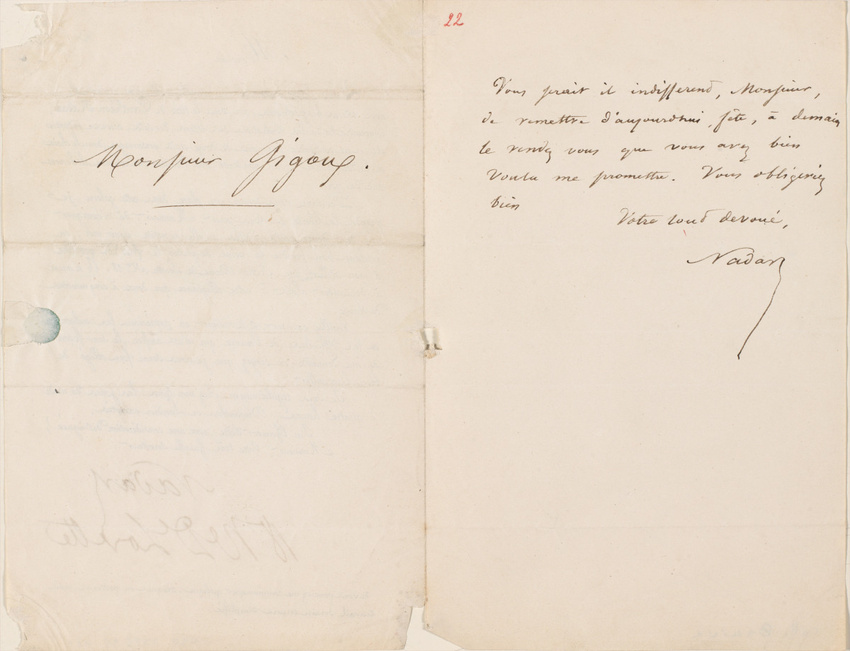 Monsieur Gigoux.
22
Vous serait il indifferent, Monsieur,
de remettre d'aujourdhui, fête, à demain
le rendez vous que vous avez bien
voulu me promettre. Vous obligeriez
bien
Votre tout devoué,
Nadar
Nadar